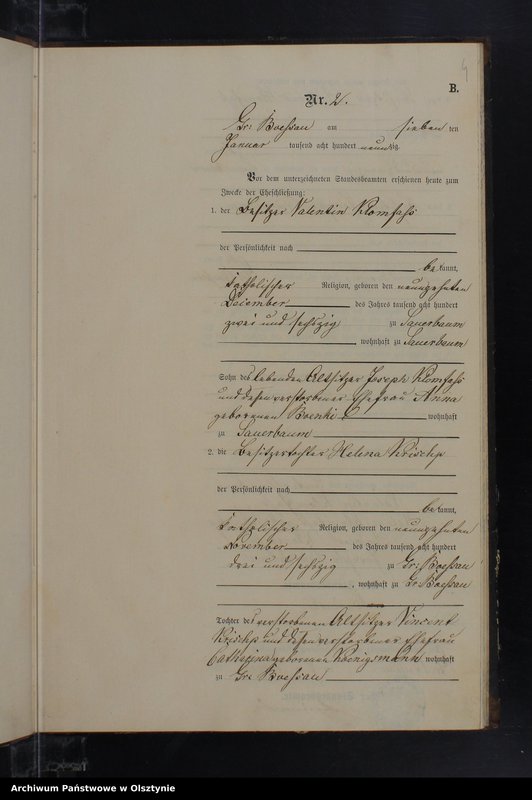 B.
Nr. 2.
Gr: Boessau am sieben ten
Januar tausend acht hundert neunzig.
Vor dem unterzeichneten Standesbeamten erschienen heute zum
Zwecke der Eheschließung:
1. der Besitzer Valentin Klomfass
der Persönlichkeit nach
bekannt,
katholischer Religion, geboren den neunzehnten
Dezember des Jahres tausend acht hundert
zwei und sechszig zu Sauerbaum
, wohnhaft zu Sauerbaum
Sohn des lebenden Altsitzer Joseph Klomfass
und dessen verstorbener Ehefrau Anna
geborenen Boenki wohnhaft
zu Sauerbaum
2. die Besitzertochter Helena Krischp
der Persönlichkeit nach
bekannt,
katholischer Religion, geboren den neunzehnten
November des Jahres tausend acht hundert
drei und sechszig zu Gr: Boessau
, wohnhaft zu Gr Boessau
Tochter des verstorbenen Altsitzer Vincent
Krischp und dessen verstorbener Ehefrau
Catharina geborenen Koenigsmann wohnhaft
zu Gr: Boessau
Archiwum Państwowe w Olsztynie